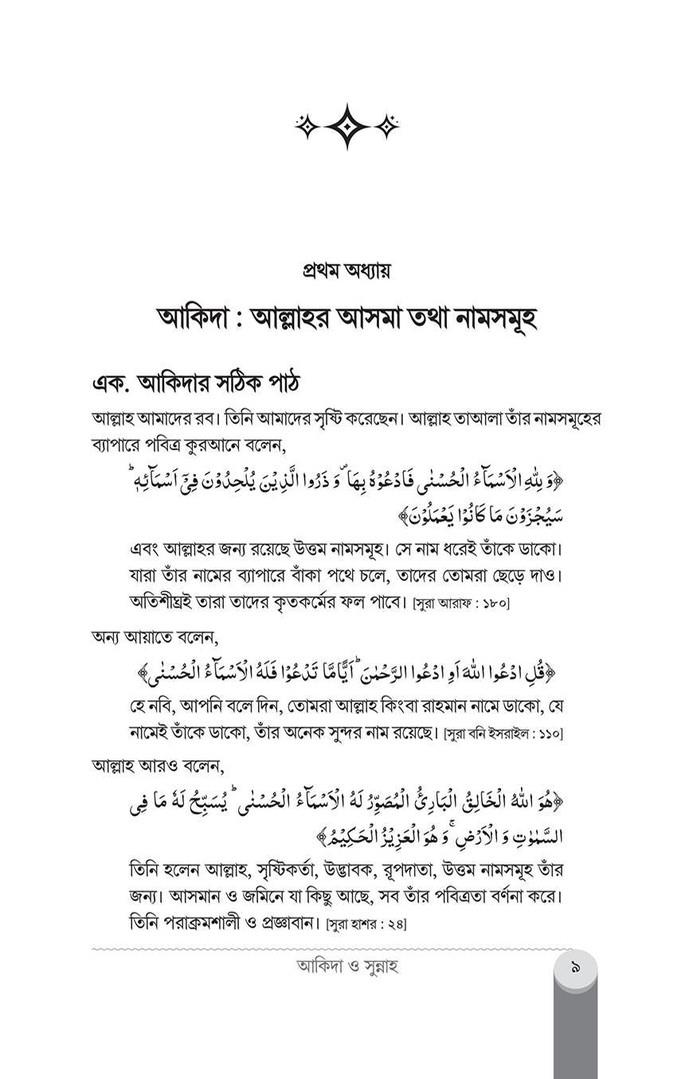 প্রথম অধ্যায়
আকিদা : আল্লাহর আসমা তথা নামসমূহ
এক. আকিদার সঠিক পাঠ
আল্লাহ আমাদের রব। তিনি আমাদের সৃষ্টি করেছেন। আল্লাহ তাআলা তাঁর নামসমূহের
ব্যাপারে পবিত্র কুরআনে বলেন,
﴿وَ لِلّٰهِ الْاَسْمَآءُ الْحُسْنٰى فَادْعُوْهُ بِهَا ۪ وَ ذَرُوا الَّذِيْنَ يُلْحِدُوْنَ فِيْۤ اَسْمَآئِهٖ ؕ
سَيُجْزَوْنَ مَا كَانُوْا يَعْمَلُوْنَ﴾
এবং আল্লাহর জন্য রয়েছে উত্তম নামসমূহ। সে নাম ধরেই তাঁকে ডাকো।
যারা তাঁর নামের ব্যাপারে বাঁকা পথে চলে, তাদের তোমরা ছেড়ে দাও।
অতিশীঘ্রই তারা তাদের কৃতকর্মের ফল পাবে। [সুরা আরাফ : ১৮০]
অন্য আয়াতে বলেন,
﴿قُلِ ادْعُوا اللّٰهَ اَوِ ادْعُوا الرَّحْمٰنَ ؕ اَيًّا مَّا تَدْعُوْا فَلَهُ الْاَسْمَآءُ الْحُسْنٰى﴾
হে নবি, আপনি বলে দিন, তোমরা আল্লাহ কিংবা রাহমান নামে ডাকো, যে
নামেই তাঁকে ডাকো, তাঁর অনেক সুন্দর নাম রয়েছে। [সুরা বনি ইসরাইল : ১১০]
আল্লাহ আরও বলেন,
﴿هُوَ اللّٰهُ الْخَالِقُ الْبَارِئُ الْمُصَوِّرُ لَهُ الْاَسْمَآءُ الْحُسْنٰى ؕ يُسَبِّحُ لَهٗ مَا فِى
السَّمٰوٰتِ وَ الْاَرْضِ ۚ وَ هُوَ الْعَزِيْزُ الْحَكِيْمُ﴾
তিনি হলেন আল্লাহ, সৃষ্টিকর্তা, উদ্ভাবক, রূপদাতা, উত্তম নামসমূহ তাঁর
জন্য। আসমান ও জমিনে যা কিছু আছে, সব তাঁর পবিত্রতা বর্ণনা করে।
তিনি পরাক্রমশালী ও প্রজ্ঞাবান। [সুরা হাশর : ২৪]
আকিদা ও সুন্নাহ
৯